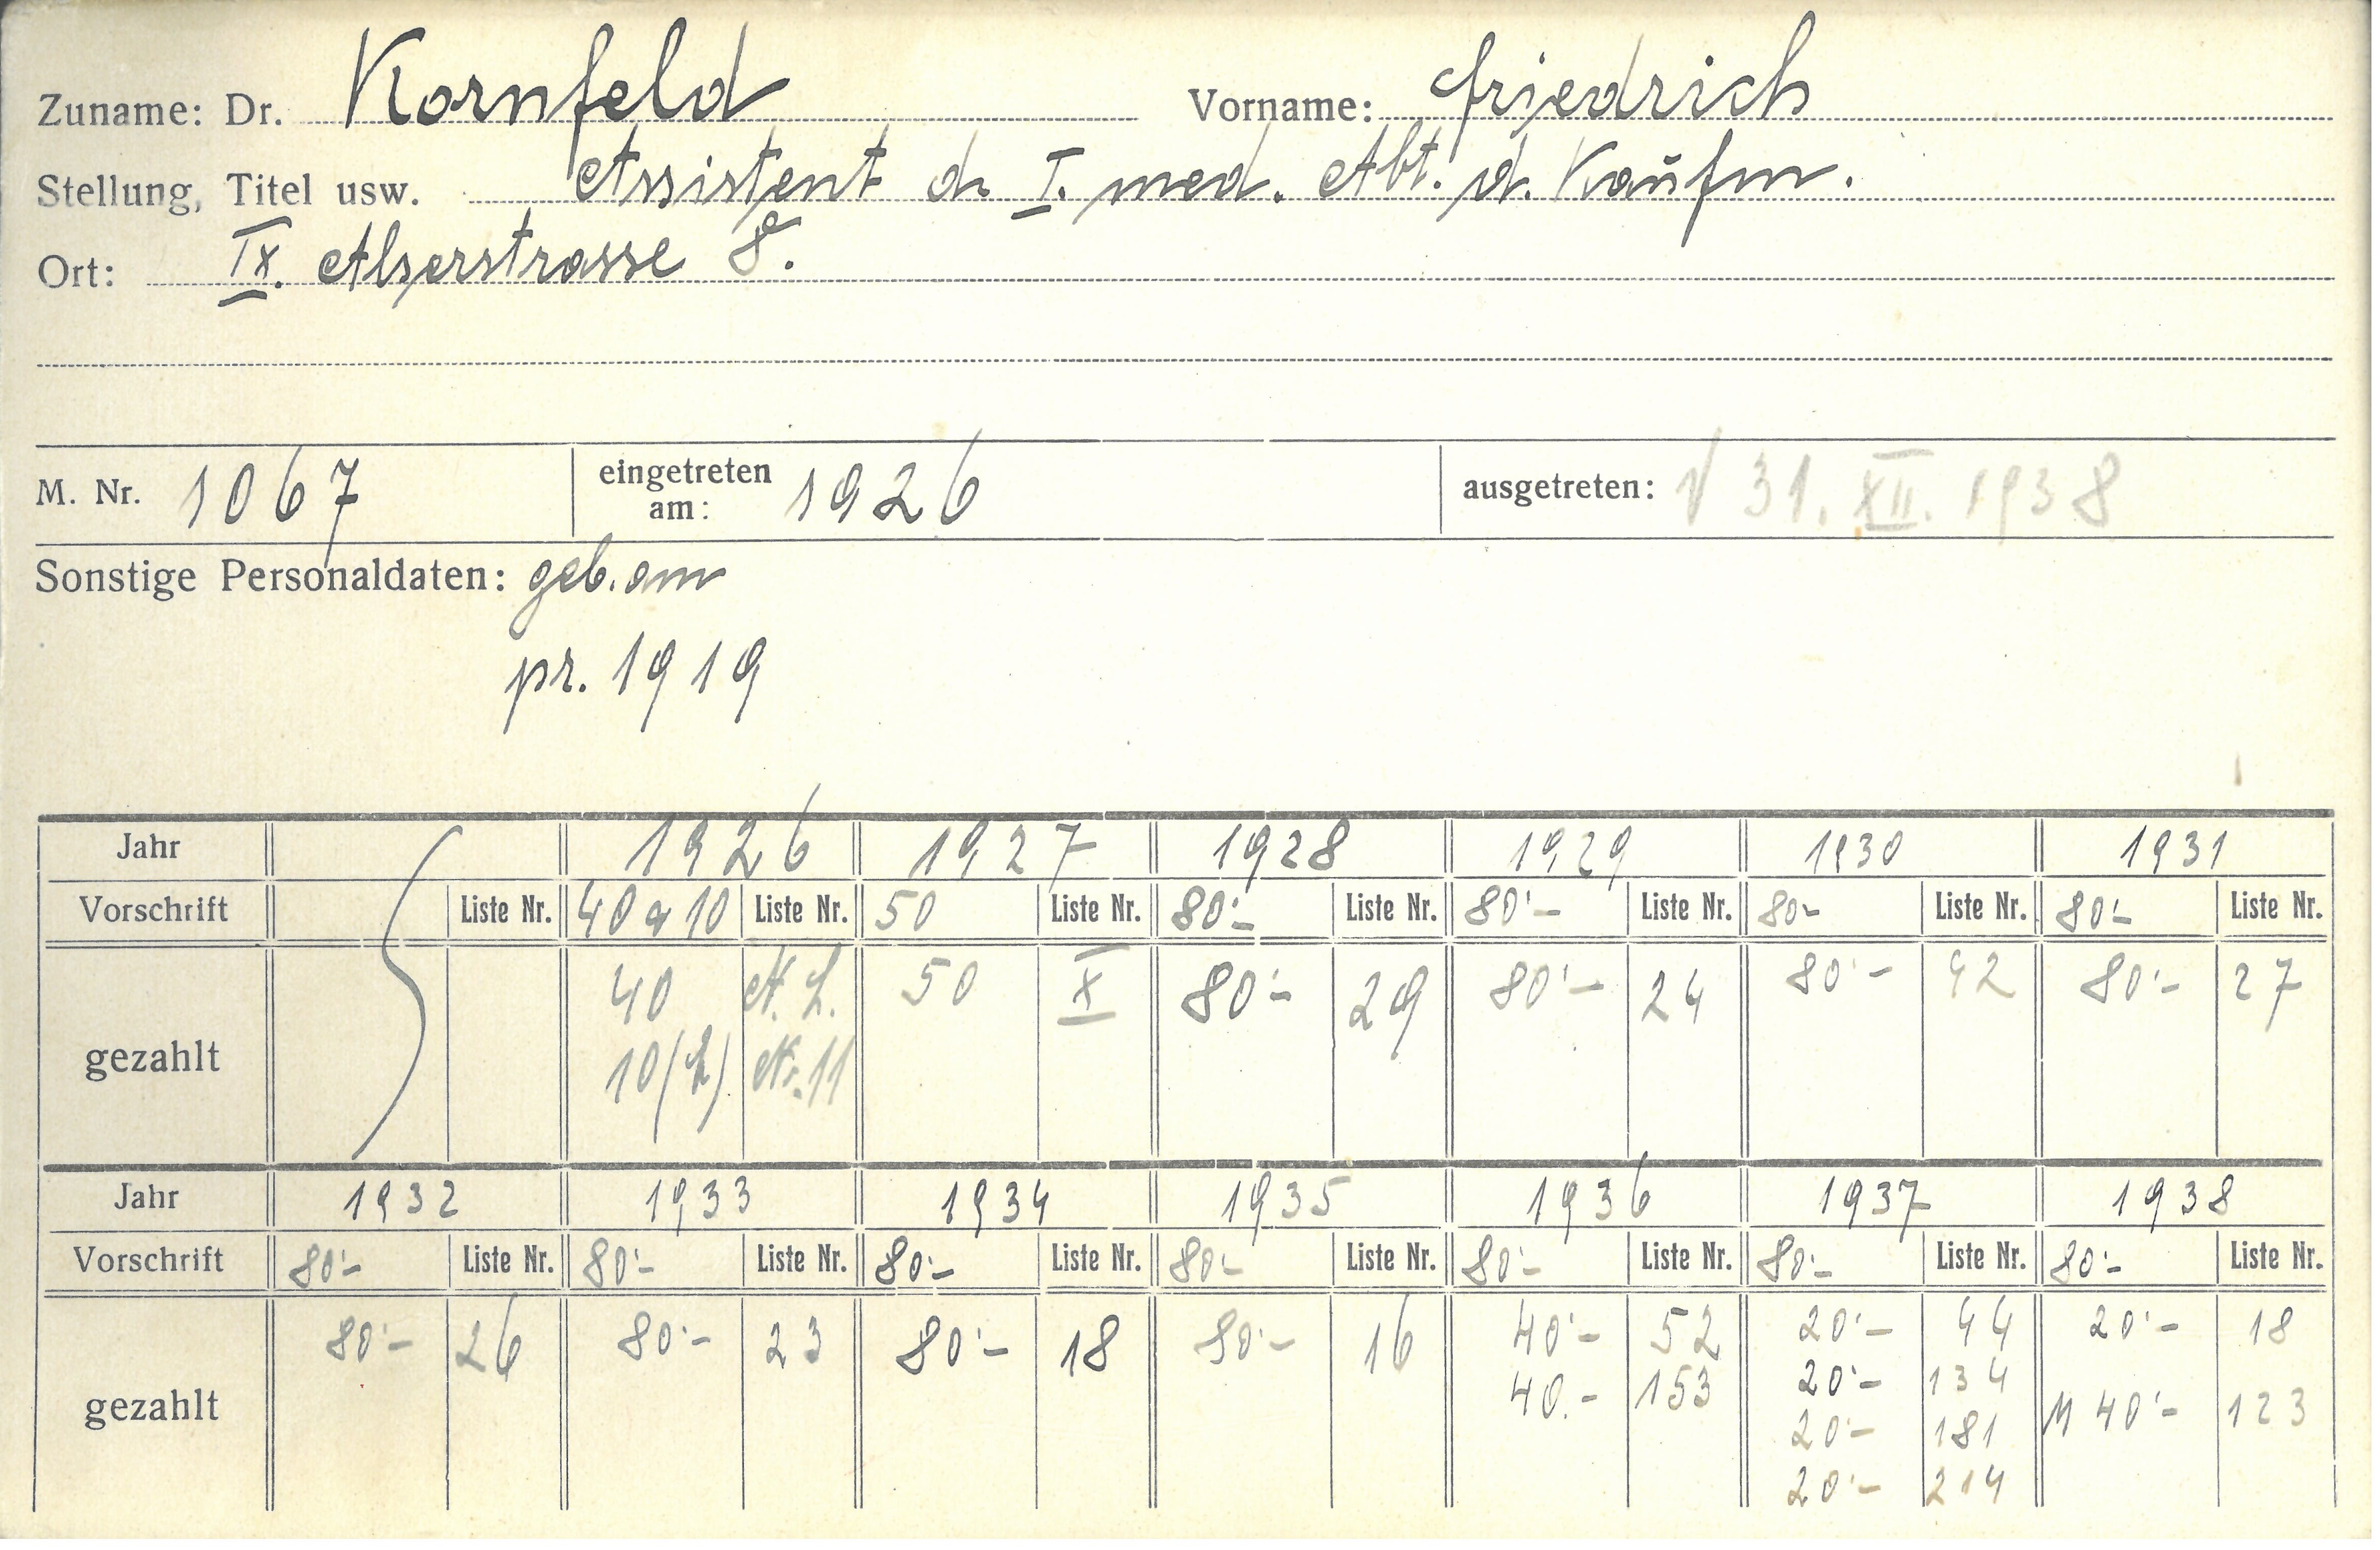 Zuname: Dr. Kornfeld Vorname: Friedrich
Stellung, Titel usw. Assistent d. I. med. Abt. d. Kaufm.
Ort: IX. Alserstrasse 8.
M. Nr. 1067 eingetreten am: 1926 ausgetreten: 31. XII. 1938
Sonstige Personaldaten: geb. am
pr. 1919
Jahr 1926 1927 1928 1929 1930 1931
Vorschrift Liste Nr. 40 a 10 Liste Nr. 50 Liste Nr. 80'- Liste Nr. 80'- Liste Nr. 80'- Liste Nr. 80'- Liste Nr.
gezahlt 40 A. L. 50 X 80'- 29 80'- 24 80'- 42 80'- 27
10 Nr. 11
Jahr 1932 1933 1934 1935 1936 1937 1938
Vorschrift 80'- Liste Nr. 80'- Liste Nr. 80'- Liste Nr. 80'- Liste Nr. 80'- Liste Nr. 80'- Liste Nr. 80'- Liste Nr.
gezahlt 80'- 26 80'- 23 80'- 18 80'- 16 40'- 52 20'- 44 20'- 18
40.- 153 20'- 134 M 40'- 123
20'- 181
20'- 214